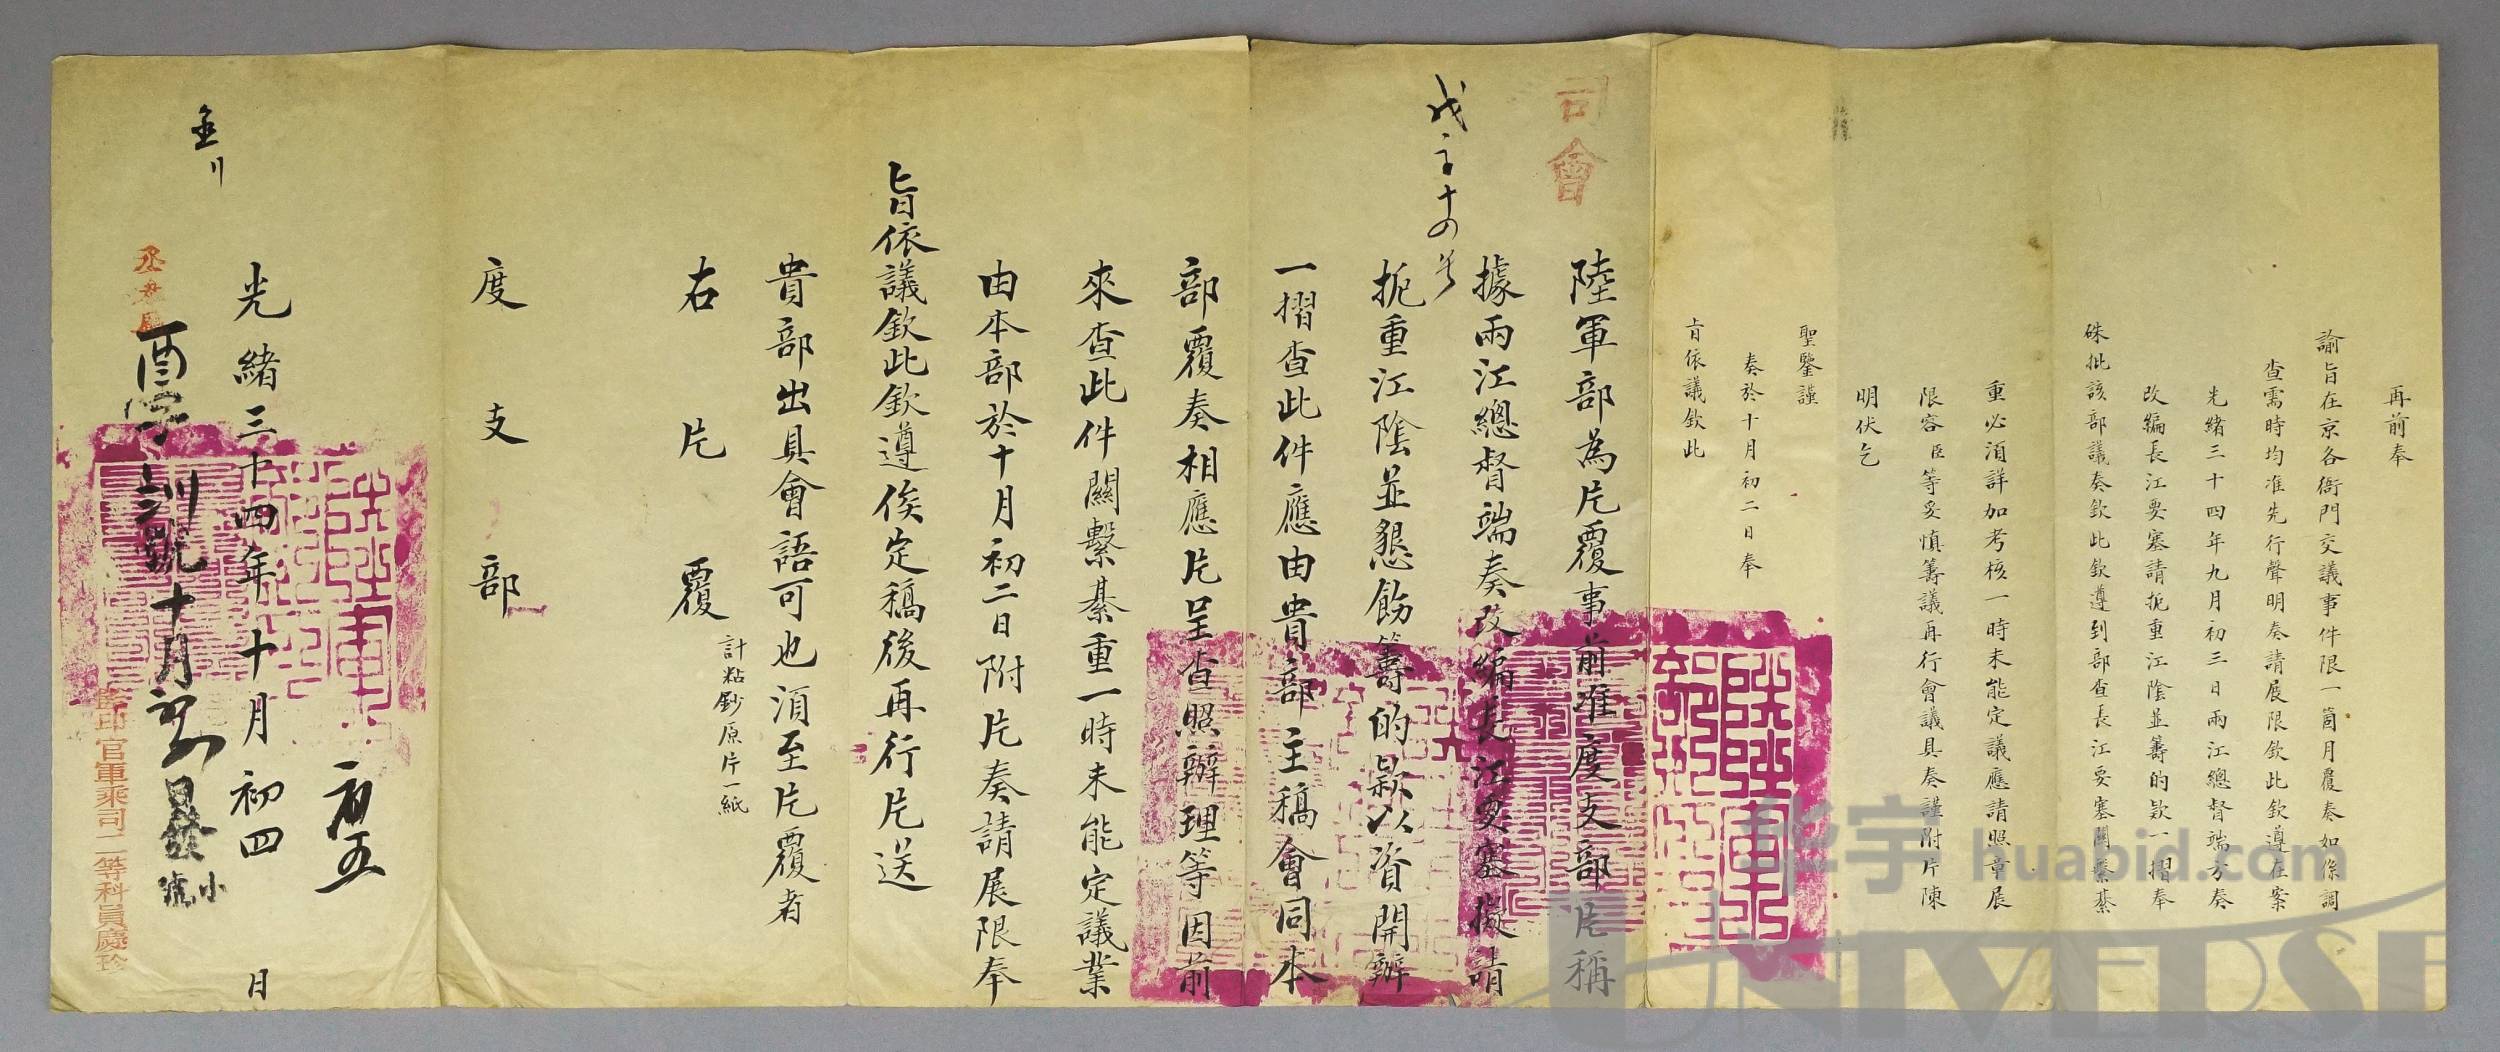 再前奉
諭旨在京各衙門交議事件限一箇月覆奏如係調
查需時均准先行聲明奏請展限欽此欽遵在案
光緒三十四年九月初三日兩江總督端方奏
改編長江要塞請扼重江陰並籌的款一摺奉
硃批該部議奏欽此欽遵到部查長江要塞關繫綦
重必須詳加考核一時未能定議應請照章展
限容臣等妥慎籌議再行會議具奏謹附片陳
明伏乞
聖鑒謹
奏於十月初二日奉
旨依議欽此
司會
陸軍部為片覆事前准度支部片稱
據兩江總督端奏改編長江要塞擬請
扼重江陰並懇飭籌的款以資開辦
一摺查此件應由貴部主稿會同本
部覆奏相應片呈查照辦理等因前
來查此件關繫綦重一時未能定議業
由本部於十月初二日附片奏請展限奉
旨依議欽此欽遵俟定稿後再行片送
貴部出具會語可也須至片覆者
計粘鈔原片一紙
右片覆
度支部
光緒三十四年十月初四日
初五
十月初
日發
監印官軍乘司二等科員慶珍
华宇 huabid.com
UNIVERSE